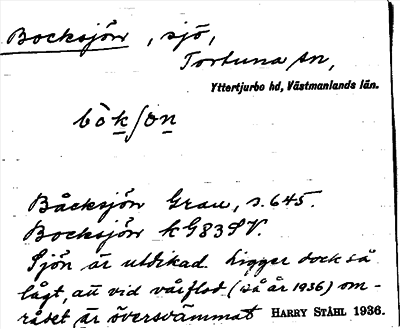 Bocksjön, sjö,
Tortuna sn,
Yttertjurbo hd, Västmanlands län.
bòkʃøn
Båcksjön Grau, s. 645.
Bocksjön kG83SV.
Sjön är utdikad. Ligger dock så
lågt, att vid vårflod (så år 1936) om-
rådet är översvämmat HARRY STÅHL 1936.